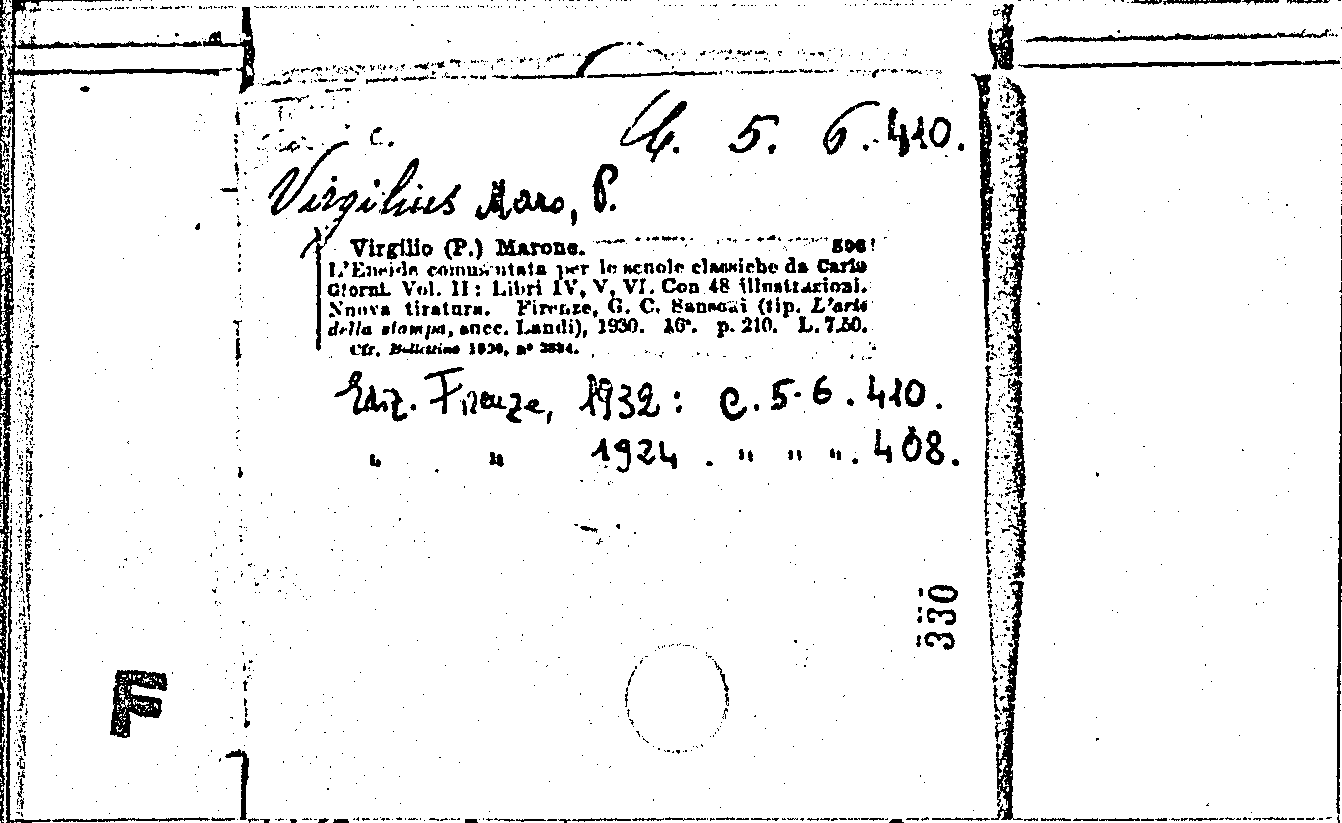 C. 5. 6. 410.
Virgilius Maro, P.
Virgilio (P.) Marone.
L'Eneide commentata per le scuole classiche da Carlo
Giorni. Vol. II: Libri IV, V, VI. Con 48 illustrazioni.
Nuova tiratura. Firenze, G. C. Sansoni (tip. L'arte
della stampa, succ. Landi), 1930. 16°. p. 210. L. 7.50.
Cfr. Bollettino 1930, n°
Ediz. Firenze, 1932: C. 5. 6. 410.
" " 1924. " " ". 408.
330
F